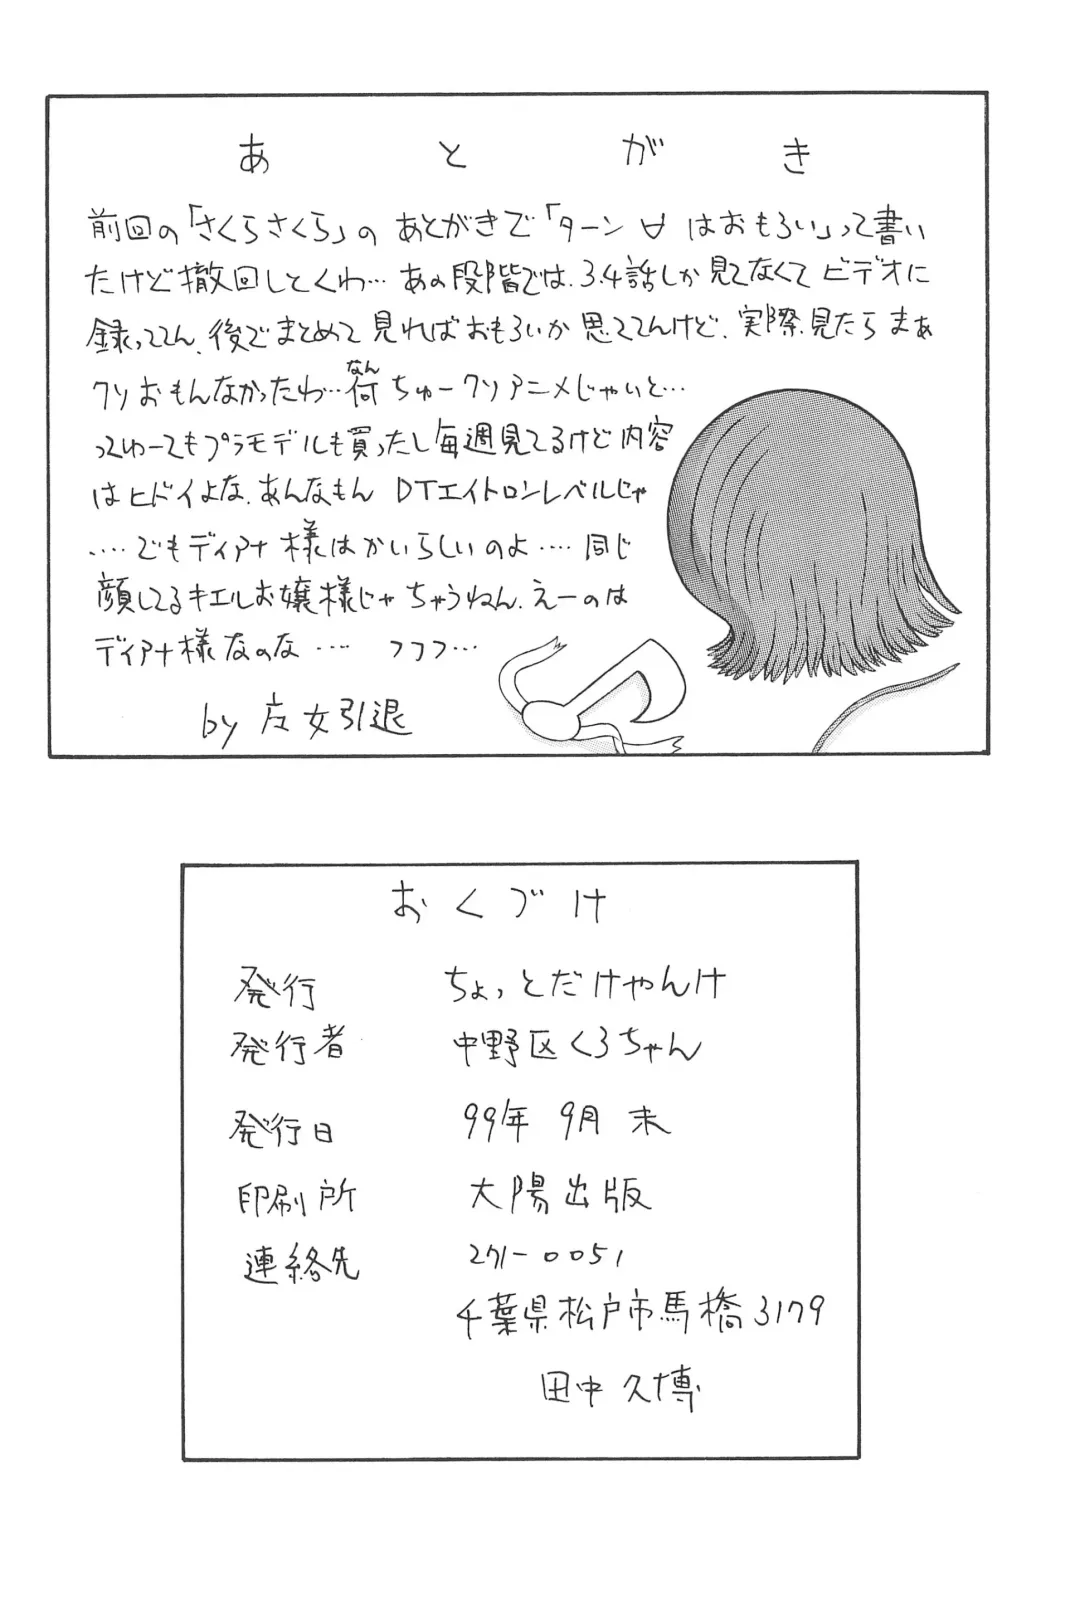 あとがき
前回の「さくらさくら」の あとがきで「ターン∀ はおもろい」って書い
たけど撤回しとくわ… あの段階では、3.4話しか見てなくてビデオに
録っててん、後でまとめて見ればおもろいか思ててんけど、実際見たらまぁ
クソおもんなかったわ…何ちゅークソアニメじゃいと…
なん
ってゆーてもプラモデルも買ったし毎週見てるけど内容
はヒドイよな、あんなもん DTエイトロンレベルじゃ
‥‥でもディアナ様はかいらしいのよ‥‥同じ
顔してるキエルお嬢様じゃちゃうねん、えーのは
ディアナ様なのな‥‥ フフフ…
by 女引退
おくづけ
発行 ちょっとだけやんけ
発行者 中野区くろちゃん
発行日 99年 9月 末
印刷所 大陽出版
連絡先 271-0051
千葉県松戸市馬橋3179
田中 久博